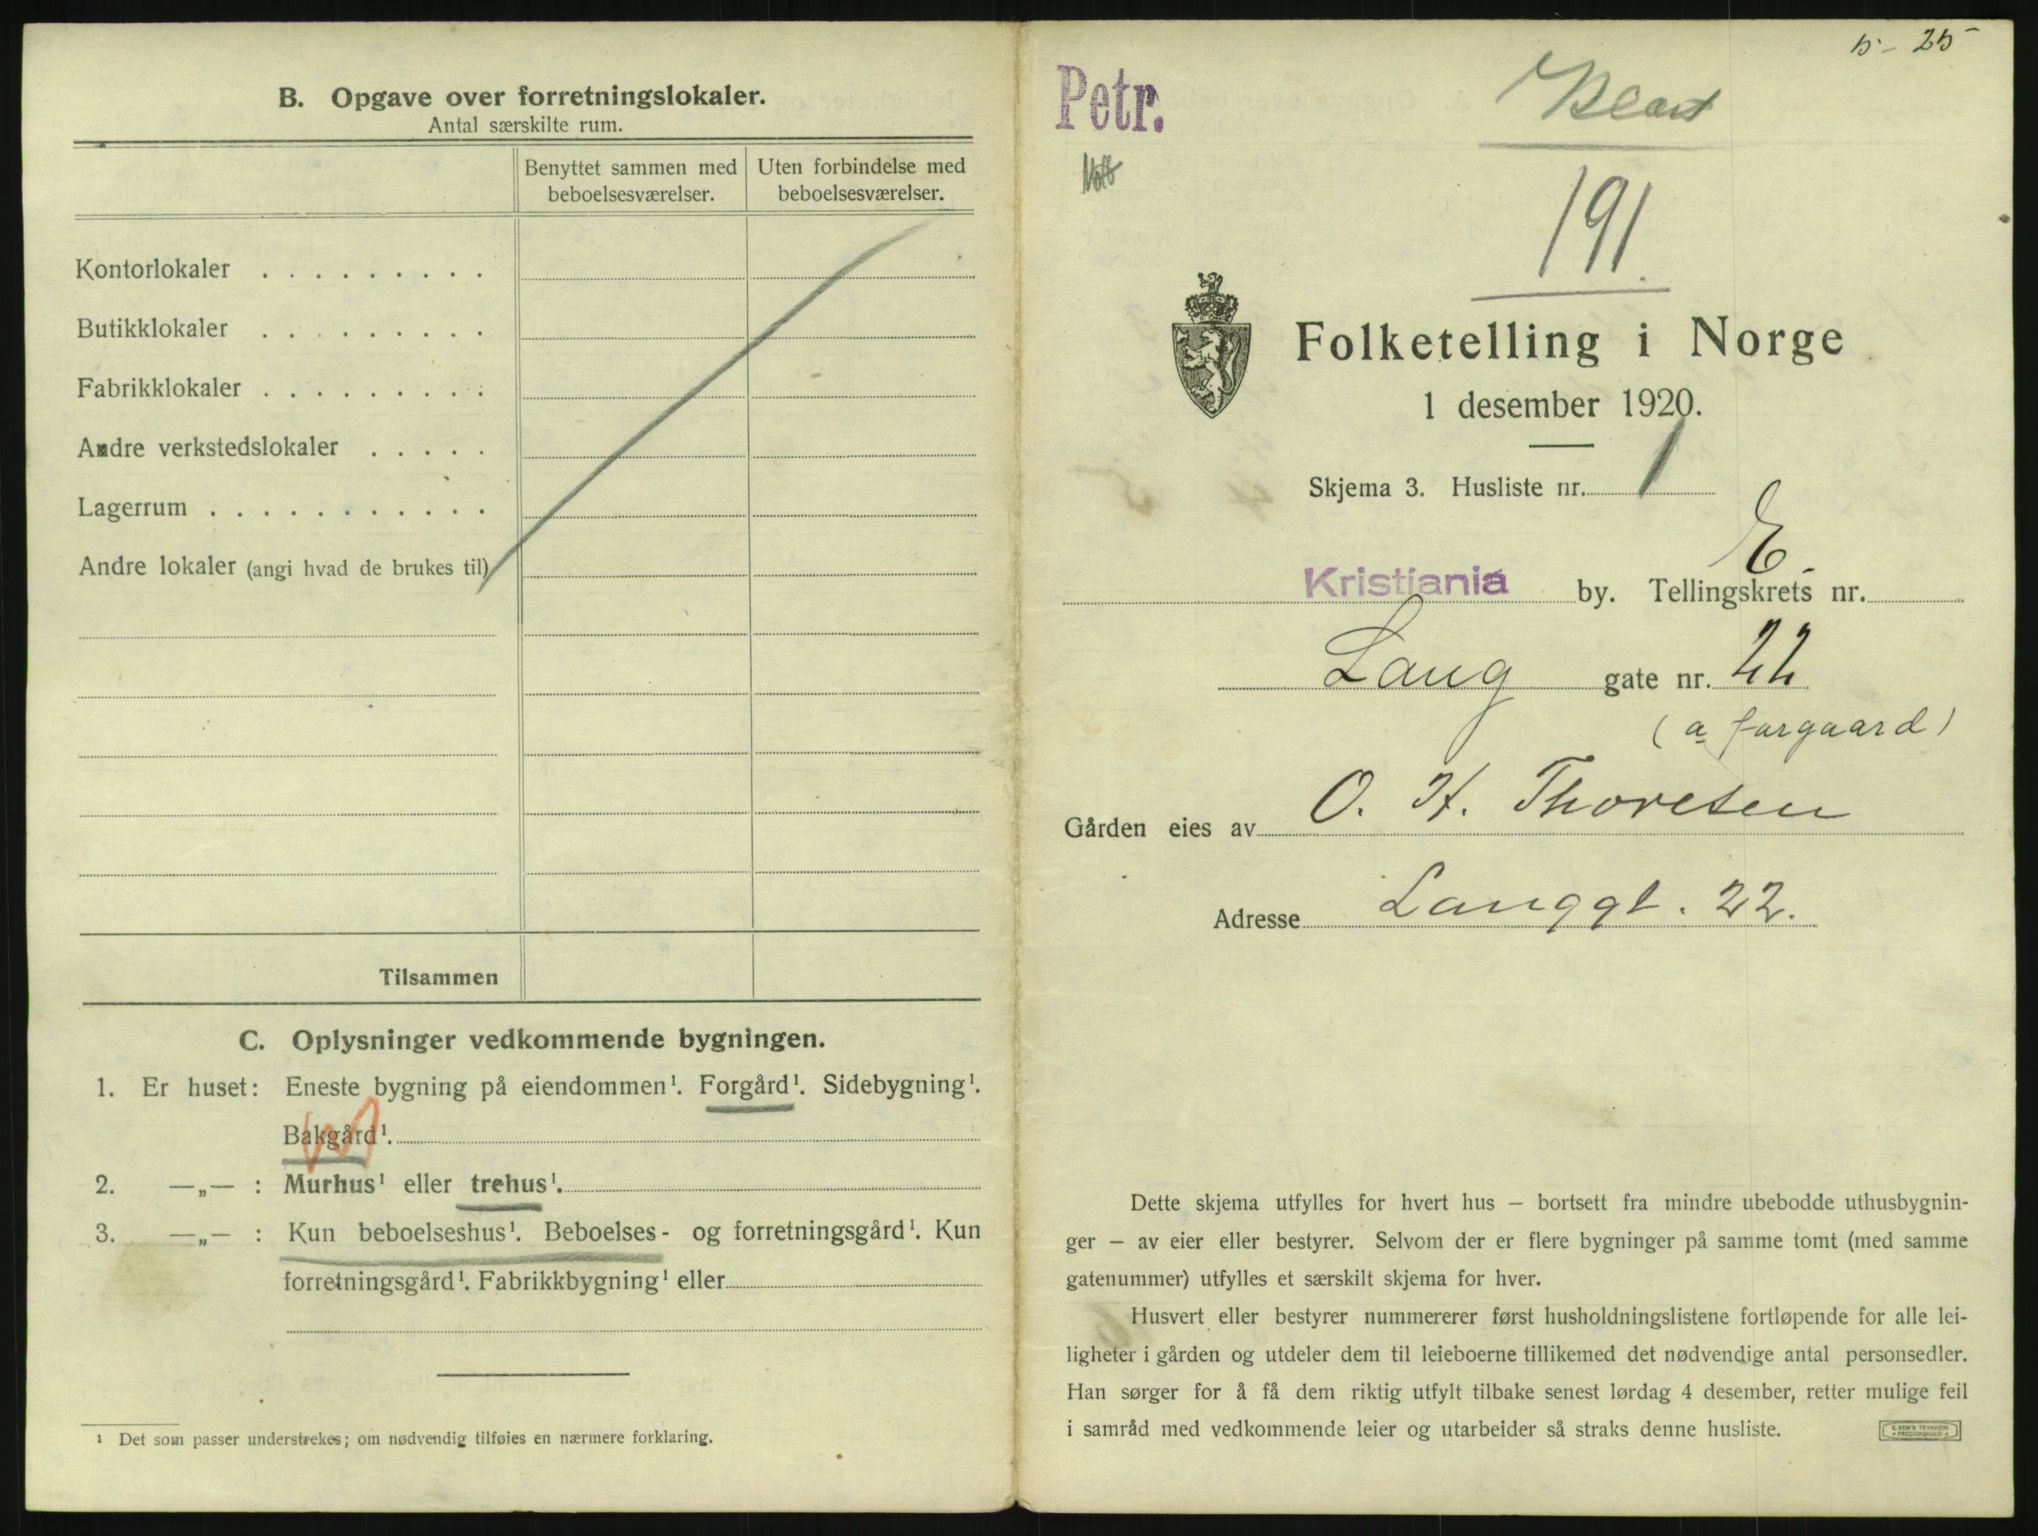 B. Opgave over forretningslokaler.
Antal særskilte rum.
Benyttet sammen med beboelsesværelser.
Uten forbindelse med beboelsesværelser.
Kontorlokaler . . . . . . . . .
Butikklokaler . . . . . . . . .
Fabrikklokaler . . . . . . . . .
Andre verkstedslokaler . . . . .
Lagerrum . . . . . . . . . . .
Andre lokaler (angi hvad de brukes til)
Tilsammen
C. Oplysninger vedkommende bygningen.
1. Er huset: Eneste bygning på eiendommen¹. Forgård¹. Sidebygning¹.
Bakgård¹.
2. —„— : Murhus¹ eller trehus¹.
3. —„— : Kun beboelseshus¹. Beboelses- og forretningsgård¹. Kun
forretningsgård¹. Fabrikkbygning¹ eller
¹ Det som passer understrekes; om nødvendig tilføies en nærmere forklaring.
25
Petr.
191.
Folketelling i Norge
1 desember 1920.
Skjema 3. Husliste nr. 1
Kristiania by. Tellingskrets nr. E.
Lang gate nr. 22
(a forgaard)
Gården eies av O. H. Thoresen
Adresse Langgt. 22.
Dette skjema utfylles for hvert hus – bortsett fra mindre ubebodde uthusbygnin-
ger – av eier eller bestyrer. Selvom der er flere bygninger på samme tomt (med samme
gatenummer) utfylles et særskilt skjema for hver.
Husvert eller bestyrer nummererer først husholdningslistene fortløpende for alle lei-
ligheter i gården og utdeler dem til leieboerne tillikemed det nødvendige antal personsedler.
Han sørger for å få dem riktig utfylt tilbake senest lørdag 4 desember, retter mulige feil
i samråd med vedkommende leier og utarbeider så straks denne husliste.